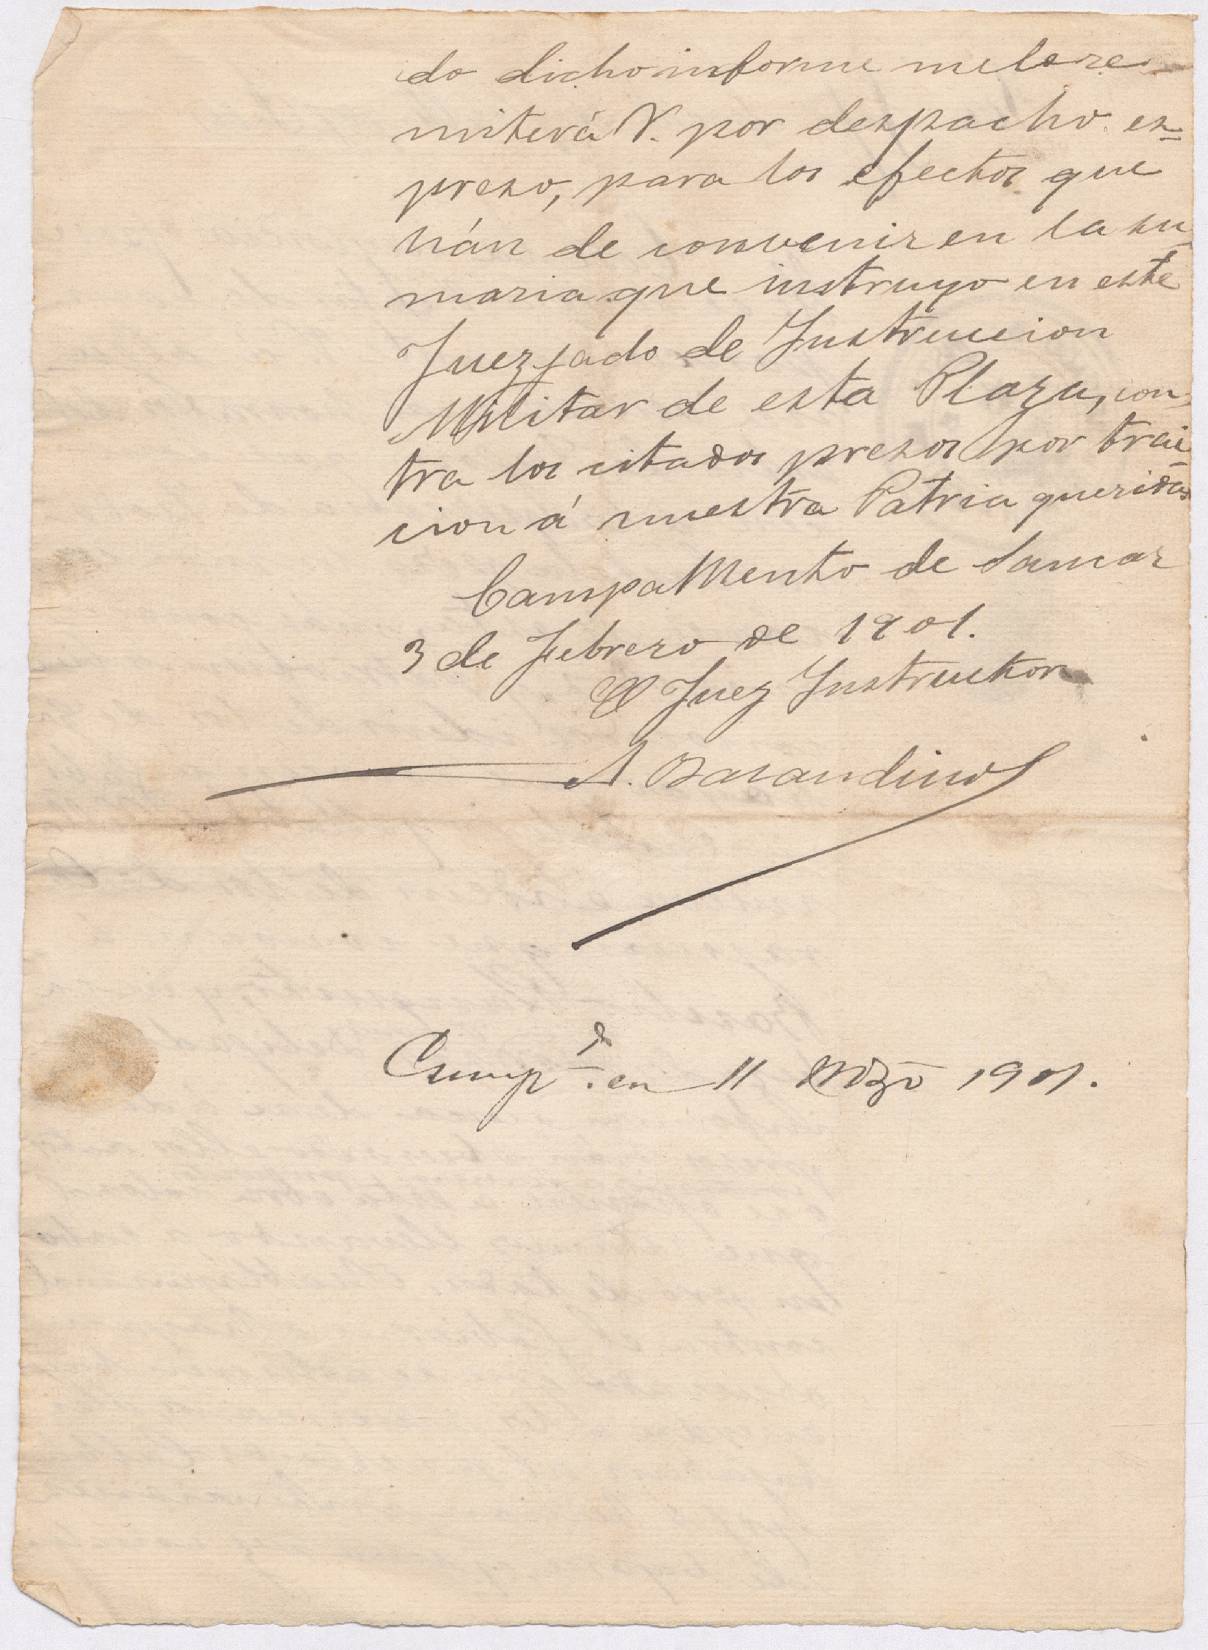 do dicho informe me lo re-
mitirá V. por despacho es=
preso, para los efectos que
hán de convenir en la su-
maria que instruyo en este
Juezgado de Instruccion
Militar de esta Plaza, con-
tra los citados presos por trai-
cion á nuestra Patria querida.
Campamento de Samar
3 de Febrero de 1901.
El Juez Instructor
A. Barandino
Cumpdo. en 11 Mzo 1901.